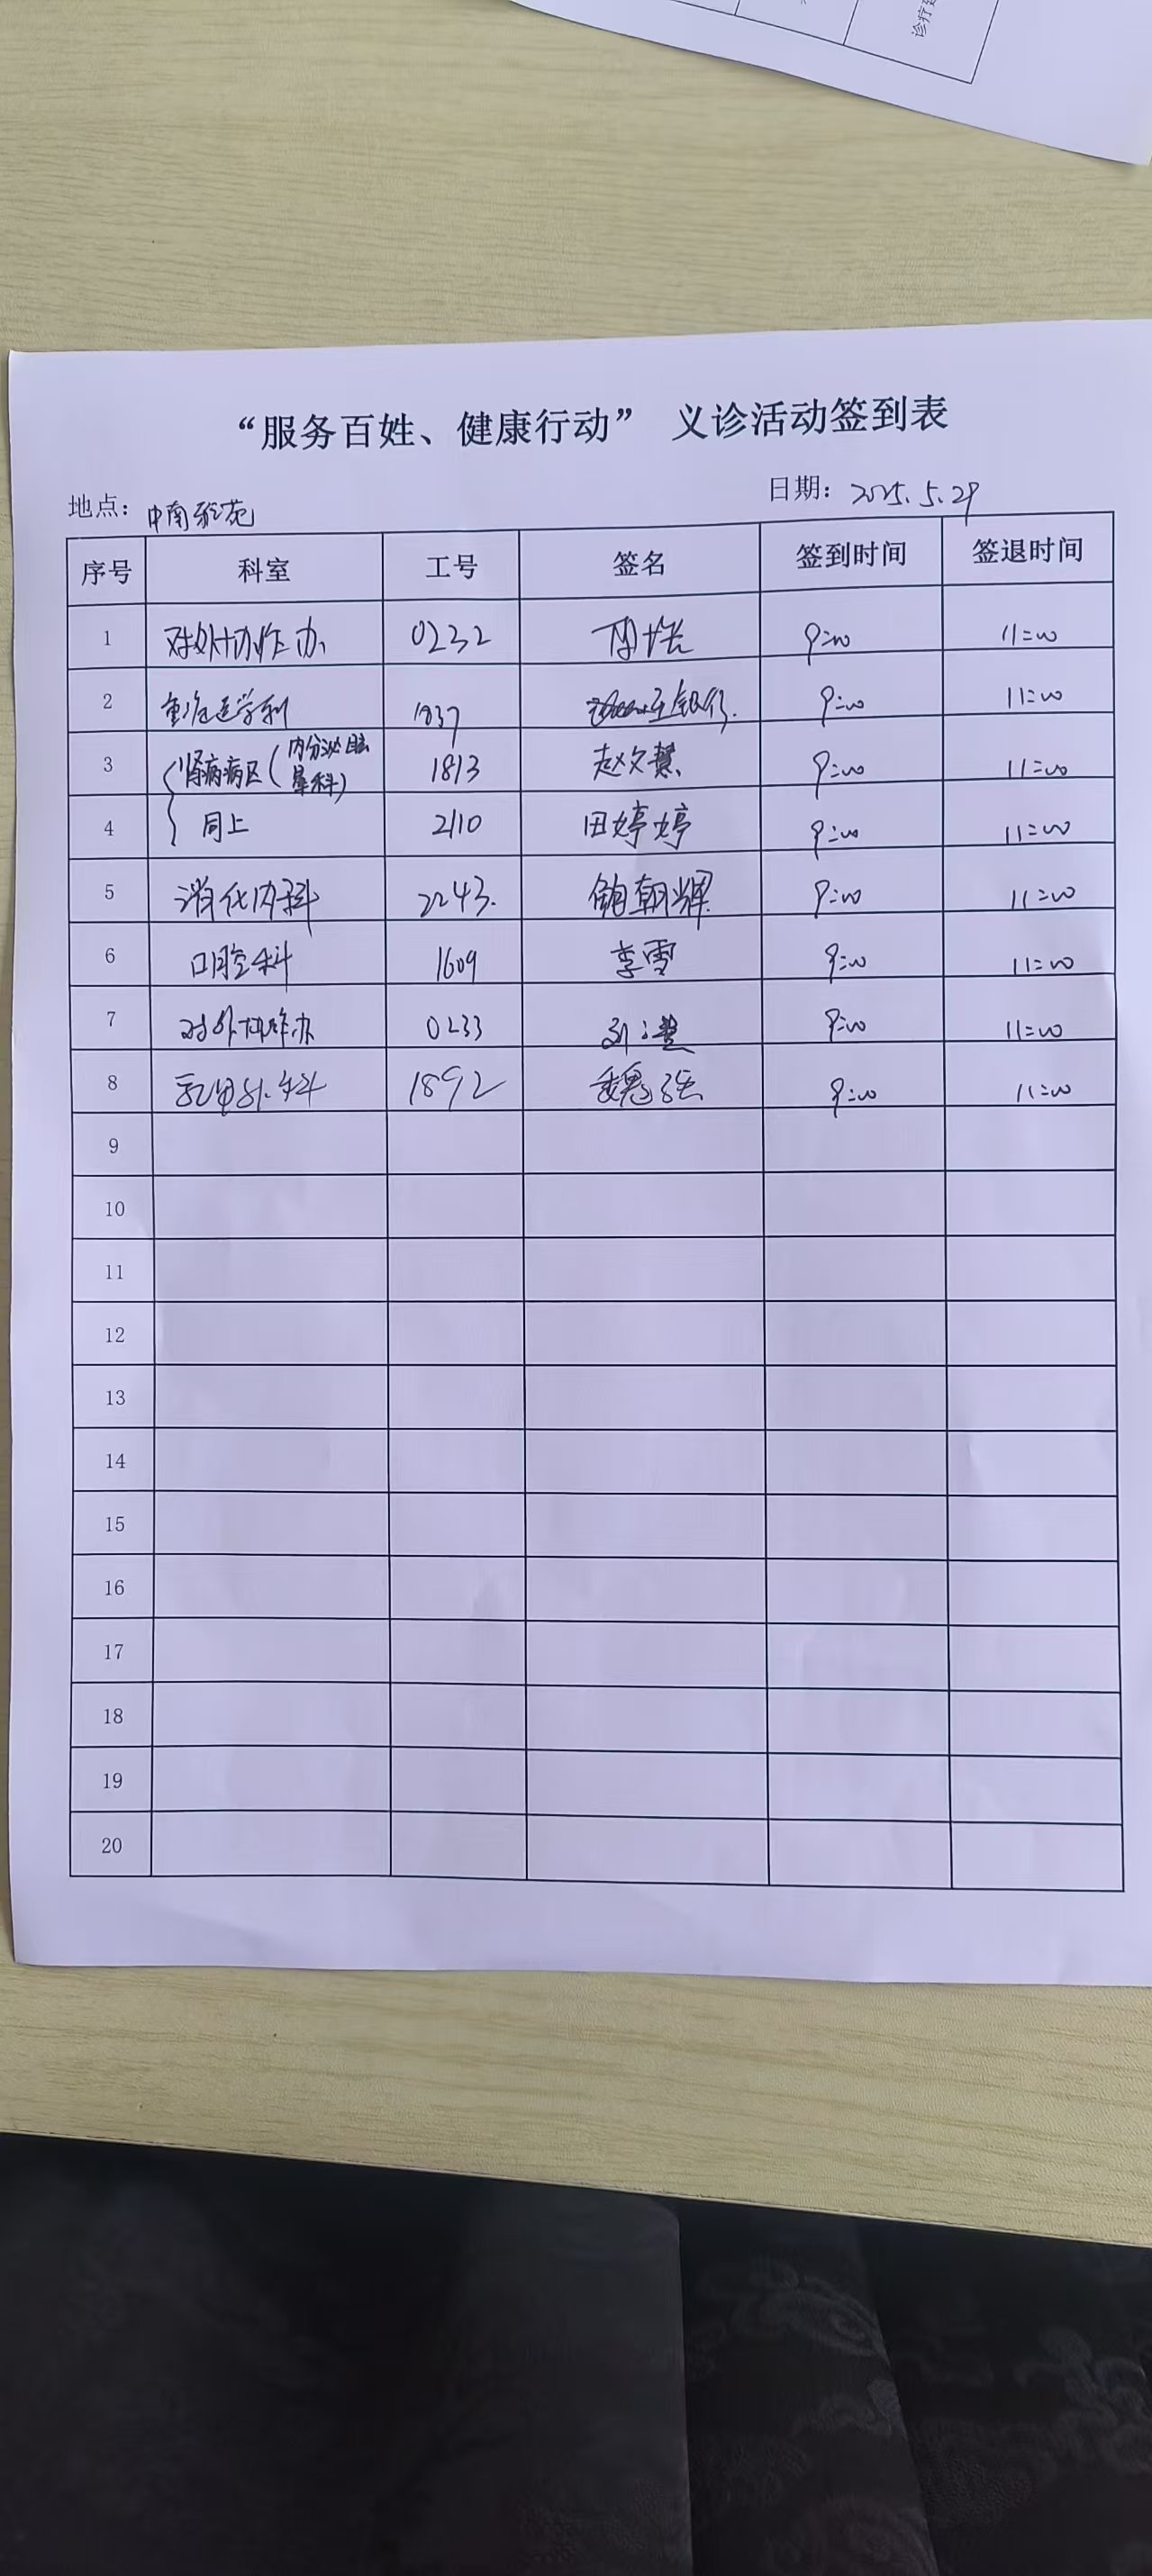 诊疗
“服务百姓、健康行动” 义诊活动签到表
地点：中南雅苑 日期：2025.5.29
序号 科室 工号 签名 签到时间 签退时间
1 对外协作办 0232 9:00 11:00
2 重症医学科 1837 9:00 11:00
3 肾病病区（内分泌 科） 1813 赵文慧 9:00 11:00
4 同上 2110 田婷婷 9:00 11:00
5 消化内科 2243. 鲍朝辉 9:00 11:00
6 口腔科 1609 李雪 9:00 11:00
7 对外协作办 0233 9:00 11:00
8 乳甲外科 1892 魏强 9:00 11:00
9
10
11
12
13
14
15
16
17
18
19
20